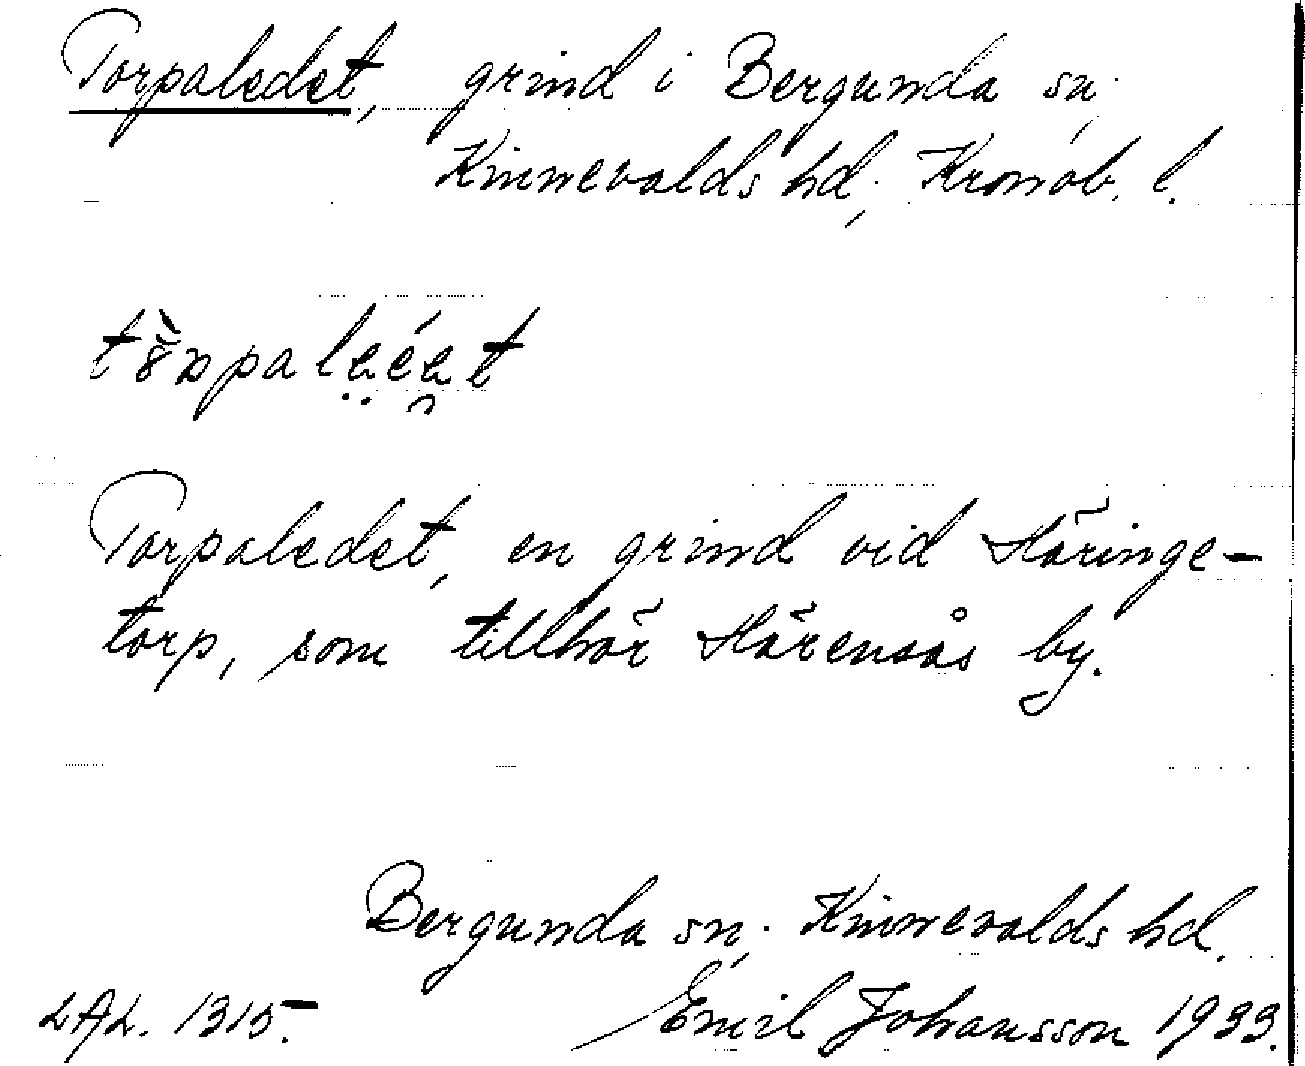 Torpaledet, grind i Bergunda sn,
Kinnevalds hd, Kronob. l.
Torpaledet, en grind vid Häringe-
torp, som tillhör Härensås by.
Bergunda sn, Kinnevalds hd.
LAL. 1315. Emil Johansson 1933.